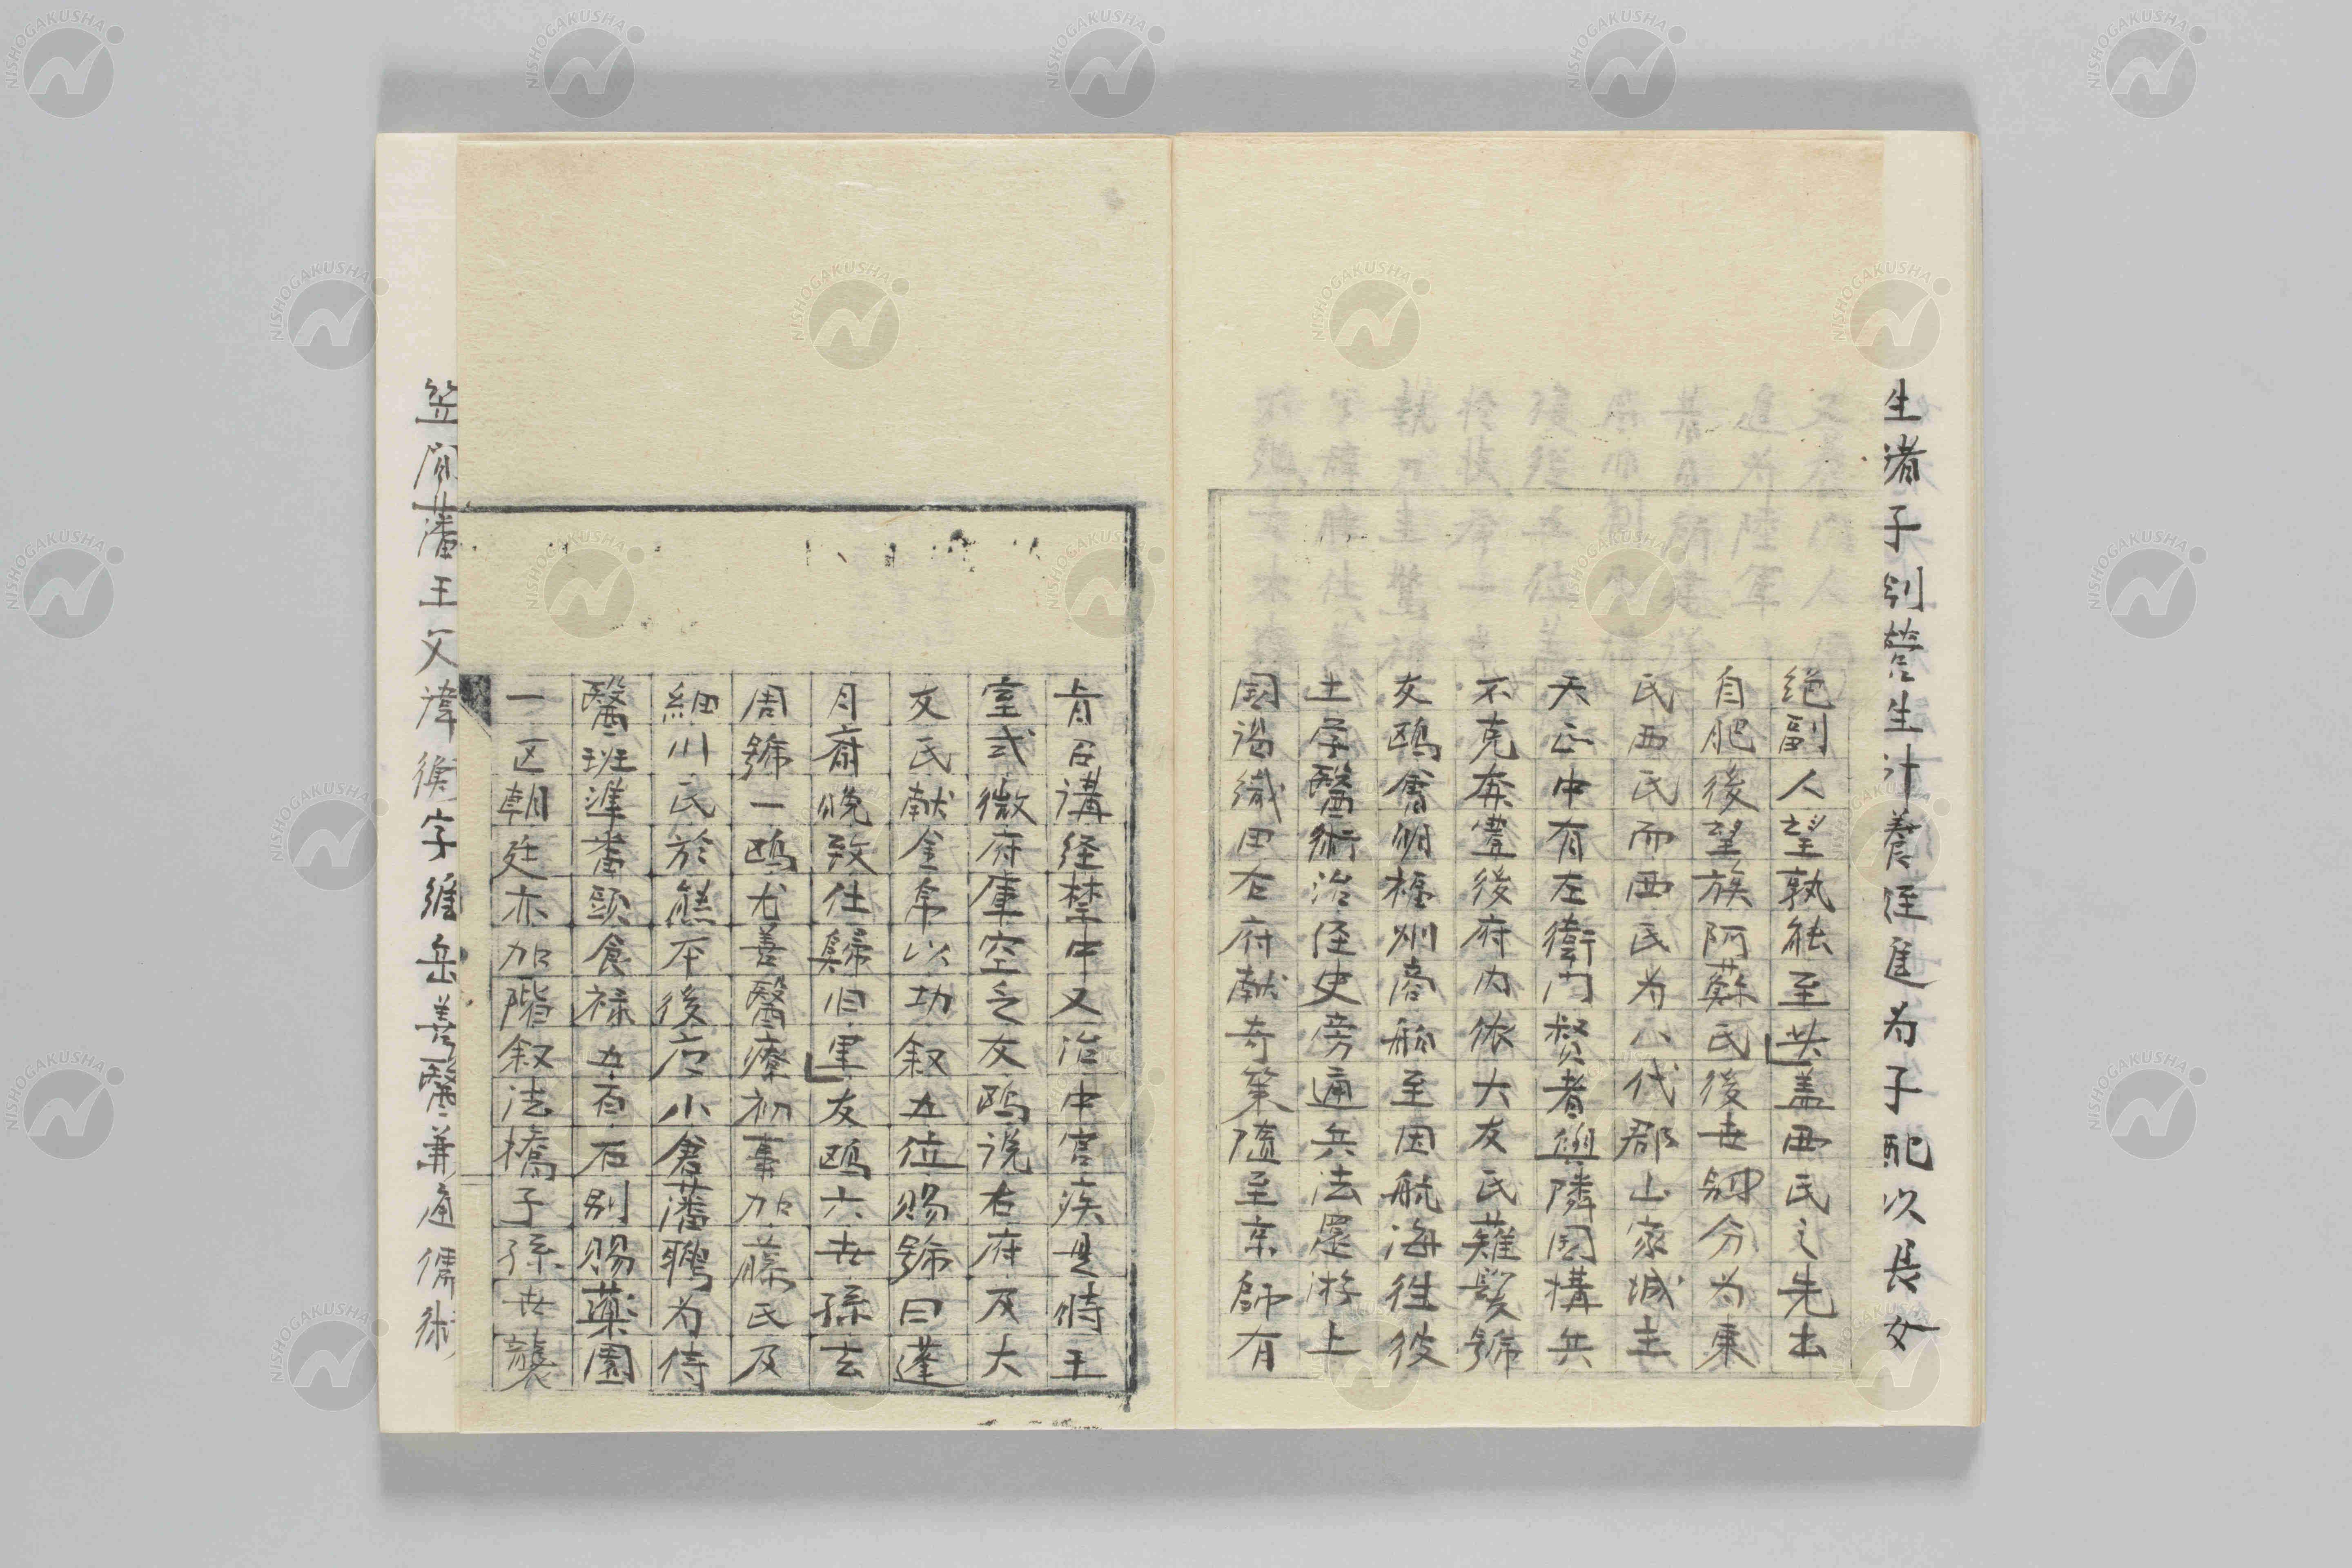 生渚子別営生計養侄進为子配次長女
絶副人望孰能至共盖西氏之先出
自肥後望族阿蘇氏後世劒分为東
氏西氏而西氏为八代郡山家城主
天正中有左衛門賛者與隣国構兵
不克奔豊後府内依大友氏薙髪號
友鷗會明檯州商舶至因航海徃彼
土学醫術治侄史旁通兵法還游上
国谒織田右府献奇策随至京師有
旨召講経禁中又治中宫疾是時王
室式微府庫空乏友鷗说右府及大
友氏献金帛以功叙五位賜號曰蓬
月齋晩致仕歸旧里友鷗六世孫玄
周號一鷗尤善醫療初事加藤氏及
細川氏於熊本後应小倉藩聘为侍
醫班準番頭食禄五百石別賜薬園
一区朝廷亦加階叙法橋子孫世襲
笠間藩王父諱衡字維岳善醫兼通儒術
NISHOGAKUSHA